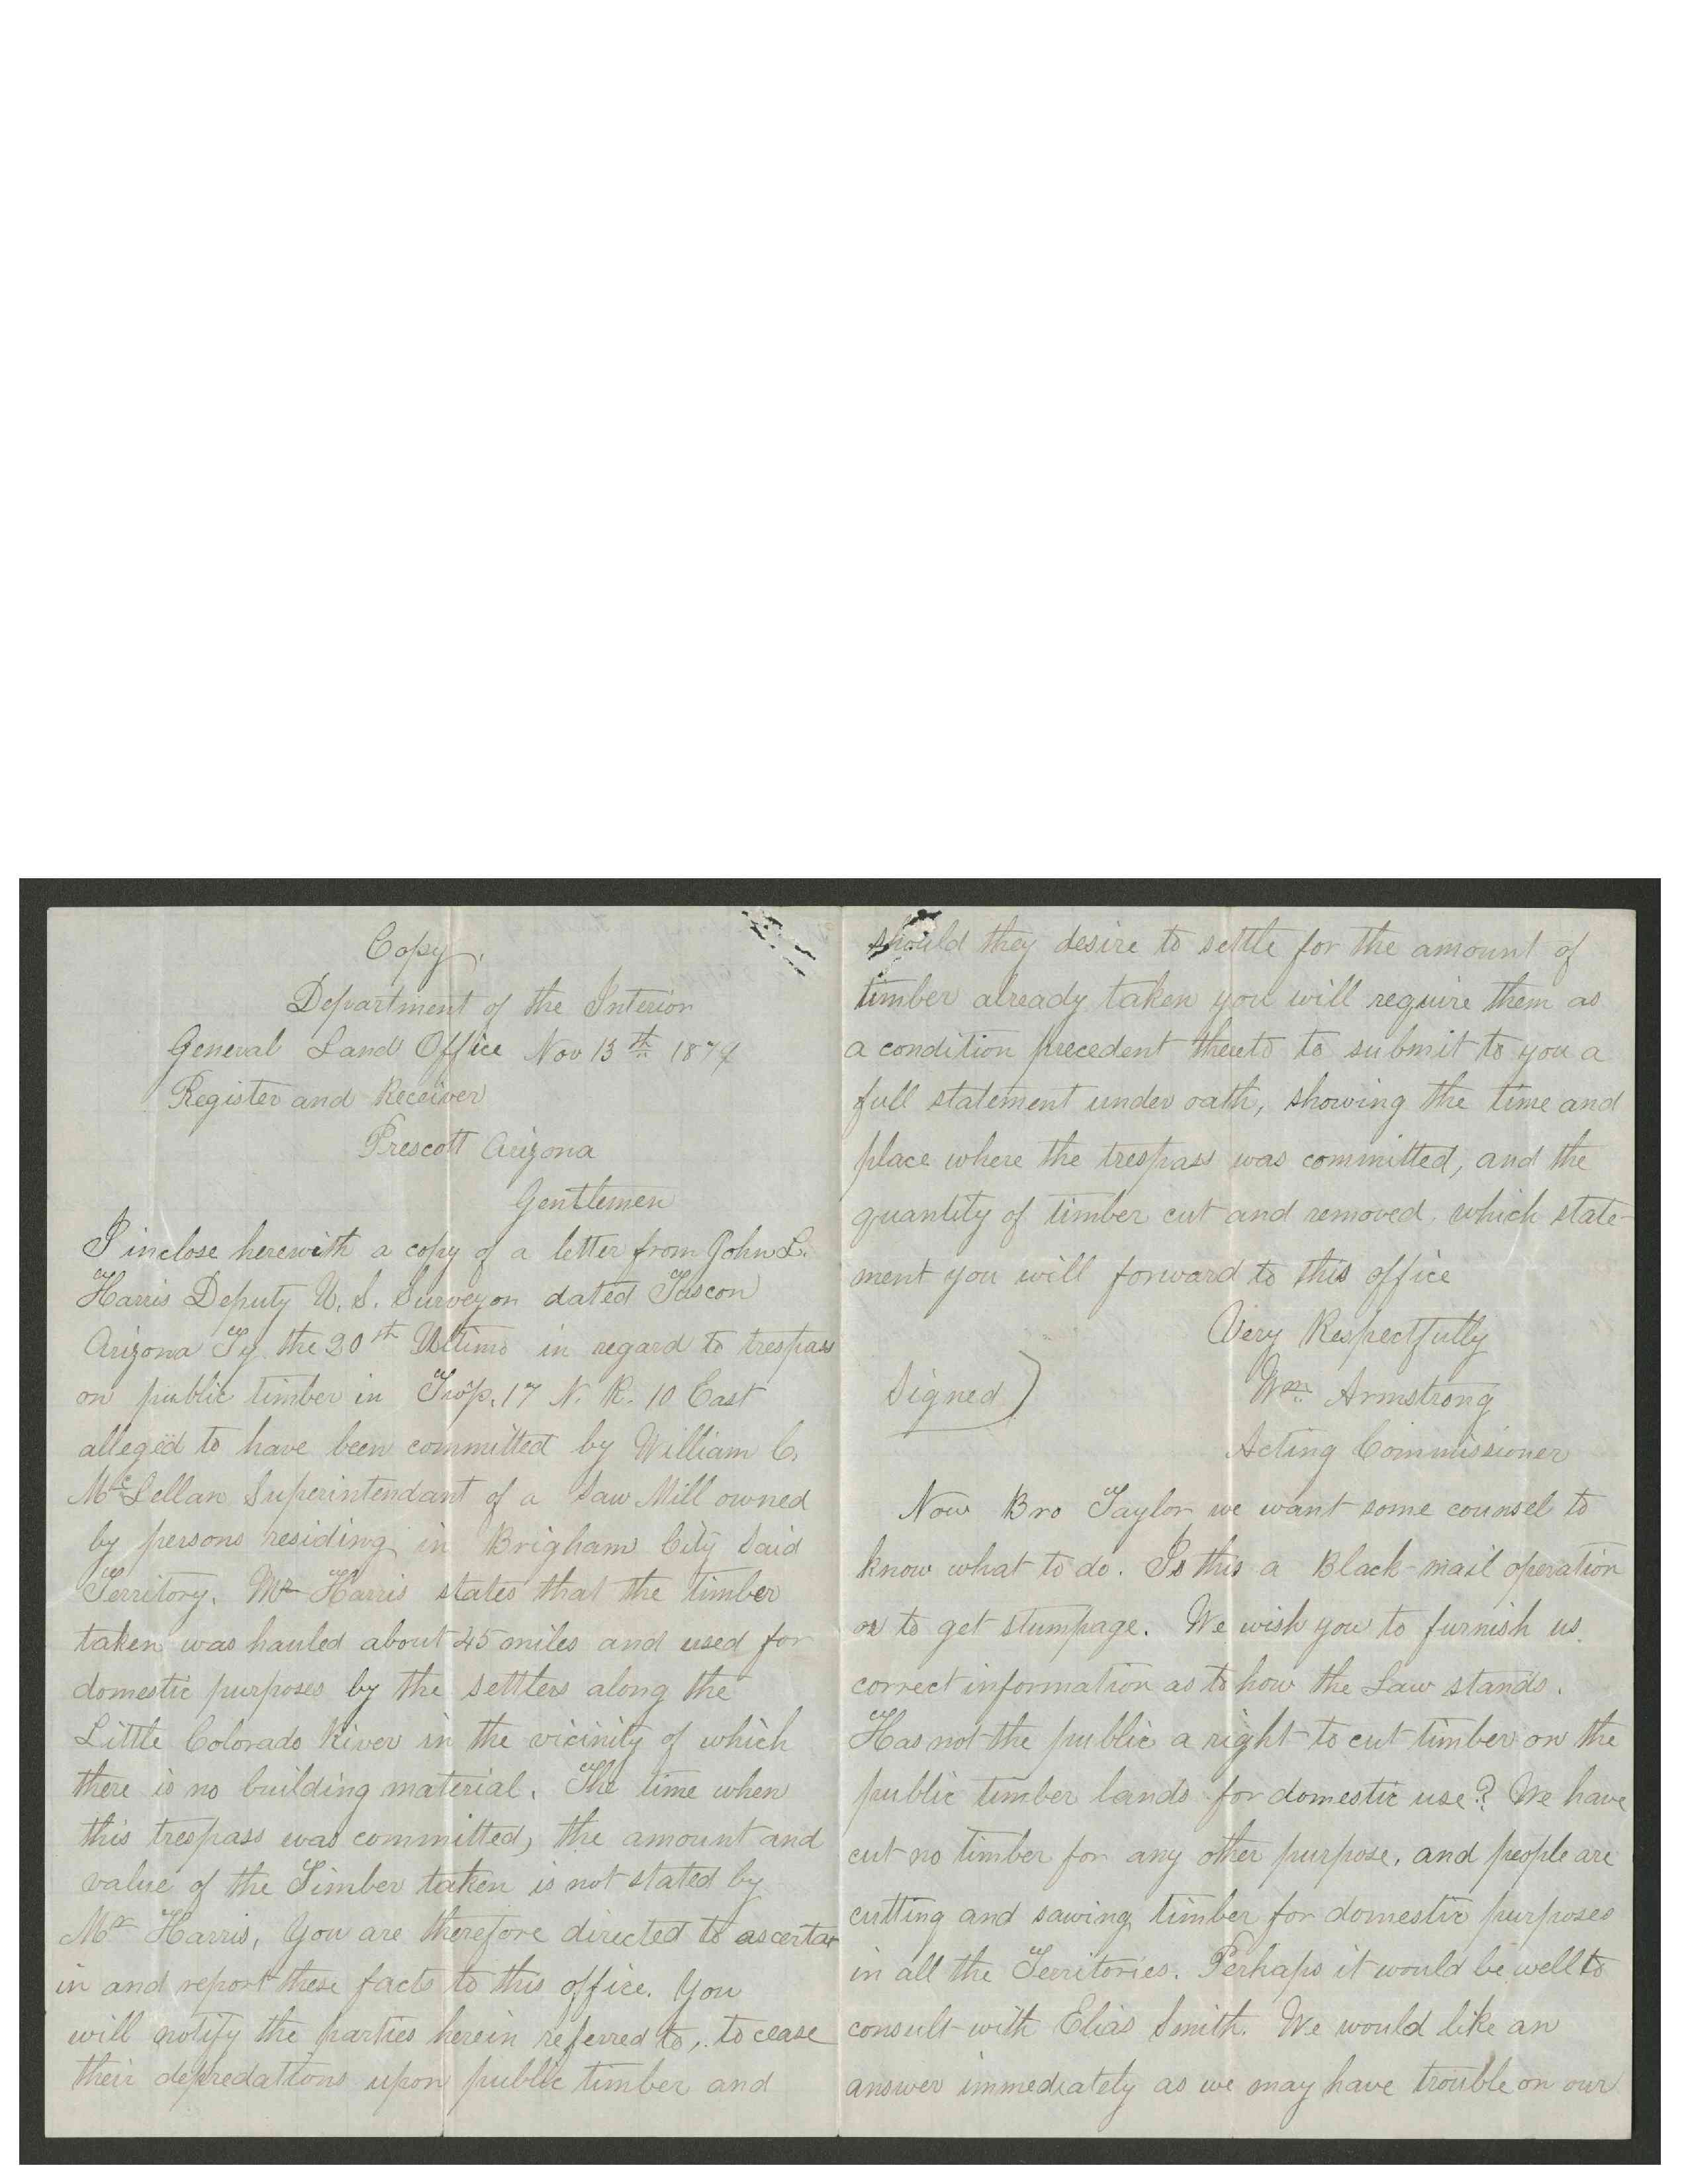 Copy.
Department of the Interior
General Land Office Nov 13th 187
Register and Receiver
Prescott Arizona
Gentlemen
I inclose herewith a copy of a letter from John L.
Harris Deputy U. S. Surveyor dated Tuscon
Arizona Ty. the 20th Ultimo in regard to trespass
on public timber in Twp. 17 N. R. 10 East
alleged to have been committed by William C.
McLellan Superintendant of a Saw Mill owned
by persons residing in Brigham City Said
Territory. Mr Harris states that the timber
taken was hauled about 45 miles and used for
domestic purposes by the settlers along the
Little Colorado River in the vicinity of which
there is no building material. The time when
this trespass was committed, the amount and
value of the Timber taken is not stated by
Mr Harris, You are therefore directed to ascerta
in and report these facts to this office. You
will notify the parties herein referred to, to cease
their depredations upon public timber and
should they desire to settle for the amount of
timber already taken you will require them as
a condition precedent thereto to submit to you a
full statement under oath, showing the time and
place where the trespass was committed, and the
quantity of timber cut and removed, which state-
ment you will forward to this office
Very Respectfully
Signed) Wm Armstrong
Acting Commissioner
Now Bro Taylor we want some counsel to
know what to do. Is this a Black-mail operation
or to get stumpage. We wish you to furnish us
correct information as to how the Law stands.
Has not the public a right to cut timber on the
public timber lands for domestic use? We have
cut no timber for any other purpose, and people are
cutting and sawing timber for domestic purposes
in all the Territories. Perhaps it would be well to
consult with Elias Smith. We would like an
answer immediately as we may have trouble on our